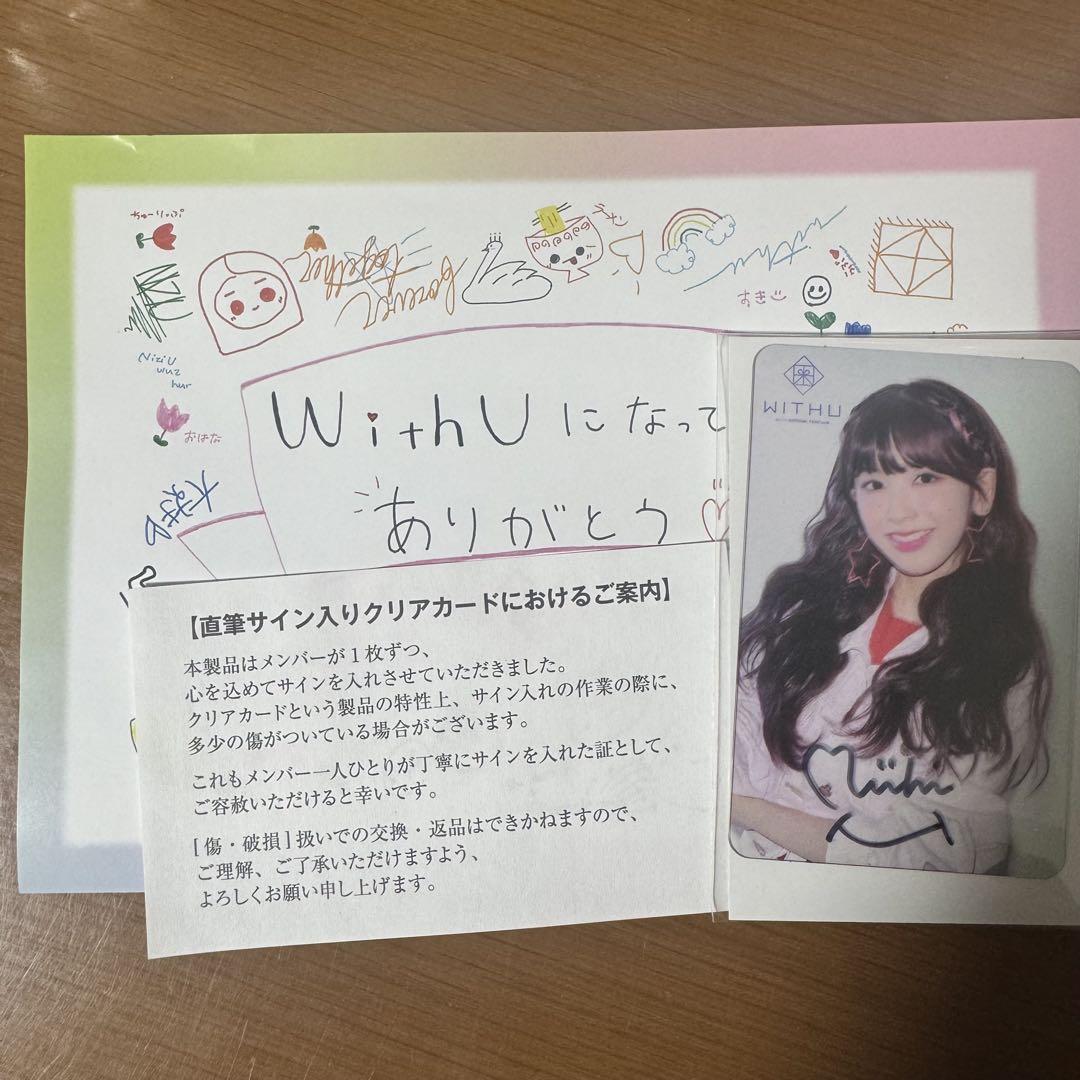 ちゅーりっぷ
together
forever
withu
おき
NiziU
wuz
hur
おはな
大好き
WithUになって
ありがとう
WITHU
Miihi
【直筆サイン入りクリアカードにおけるご案内】
本製品はメンバーが1枚ずつ、
心を込めてサインを入れさせていただきました。
クリアカードという製品の特性上、サイン入れの作業の際に、
多少の傷がついている場合がございます。
これもメンバー一人ひとりが丁寧にサインを入れた証として、
ご容赦いただけると幸いです。
[傷・破損]扱いでの交換・返品はできかねますので、
ご理解、ご了承いただけますよう、
よろしくお願い申し上げます。